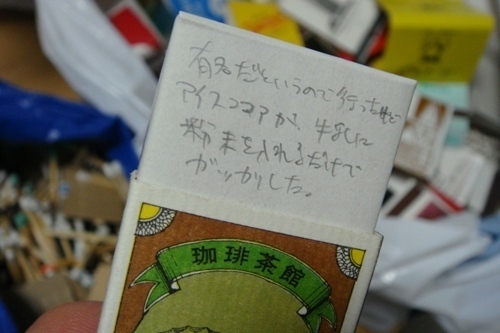 有名だというので行ったけど
アイスココアが、牛乳に
粉末を入れるだけで
ガッカリした。
珈琲茶館